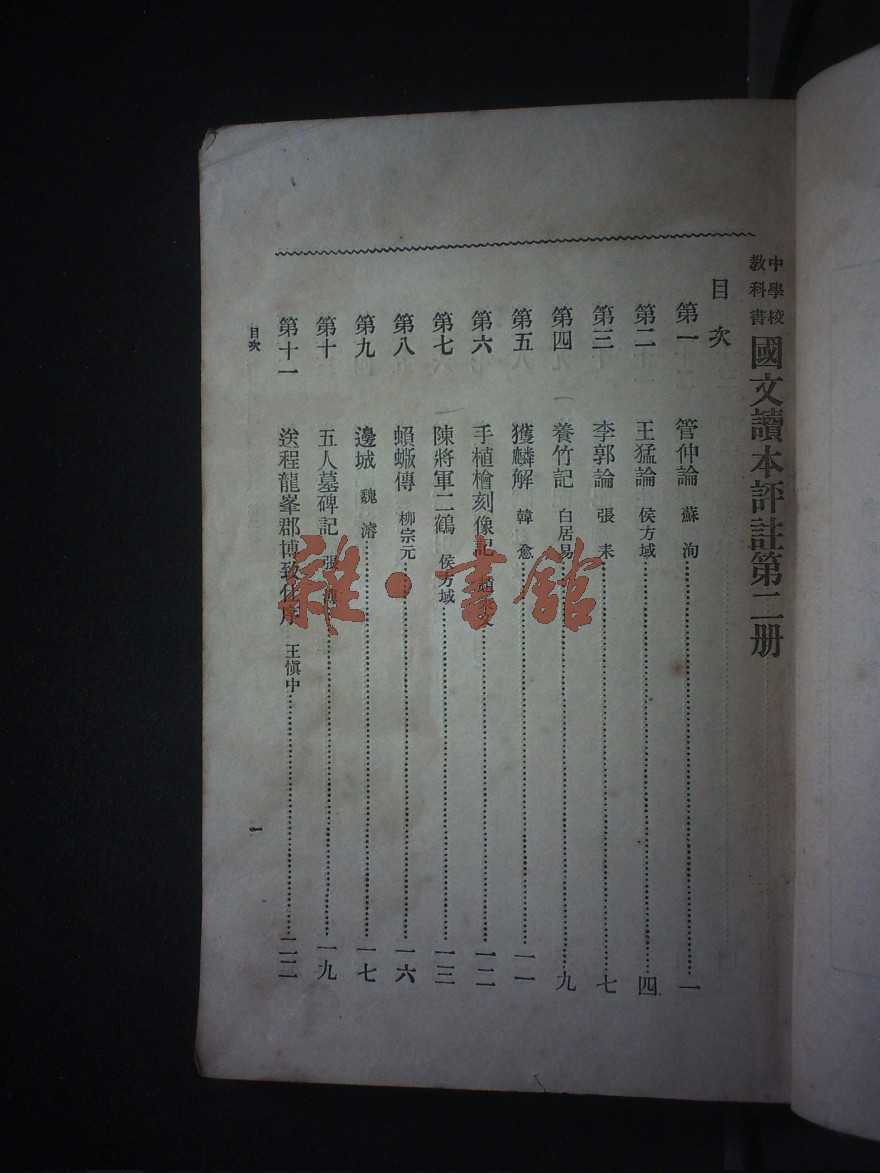 中學校
教科書
國文讀本評註第二册
目次
第一 管仲論 蘇洵 一
第二 王猛論 侯方域 四
第三 李郭論 張耒 七
第四 養竹記 白居易 九
第五 獲麟解 韓愈 一一
第六 手植檜刻像記 一二
第七 陳將軍二鶴 侯方域 一三
第八 蝜蝂傳 柳宗元 一六
第九 邊城 魏濬 一七
第十 五人墓碑記 張 一九
第十一 送程龍峯郡博致仕序 王愼中 二二
目次
一
雜·書館